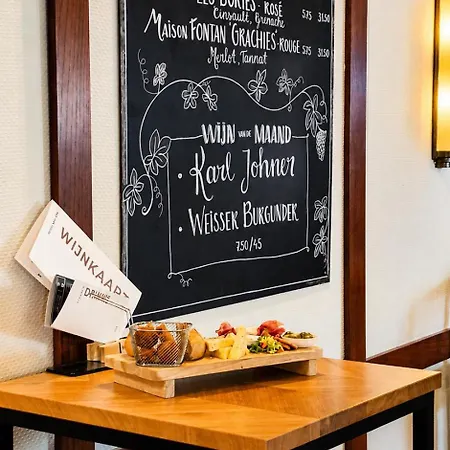 LES BORIES - ROSÉ
Cinsault, Grenache 5.75 31.50
MAISON FONTAN 'GRACHIES' - ROUGE 5.75 31.50
Merlot, Tannat
WIJN VAN DE MAAND
• Karl Johner
• WEISSER BURGUNDER
7.50/45
WIJNKAART